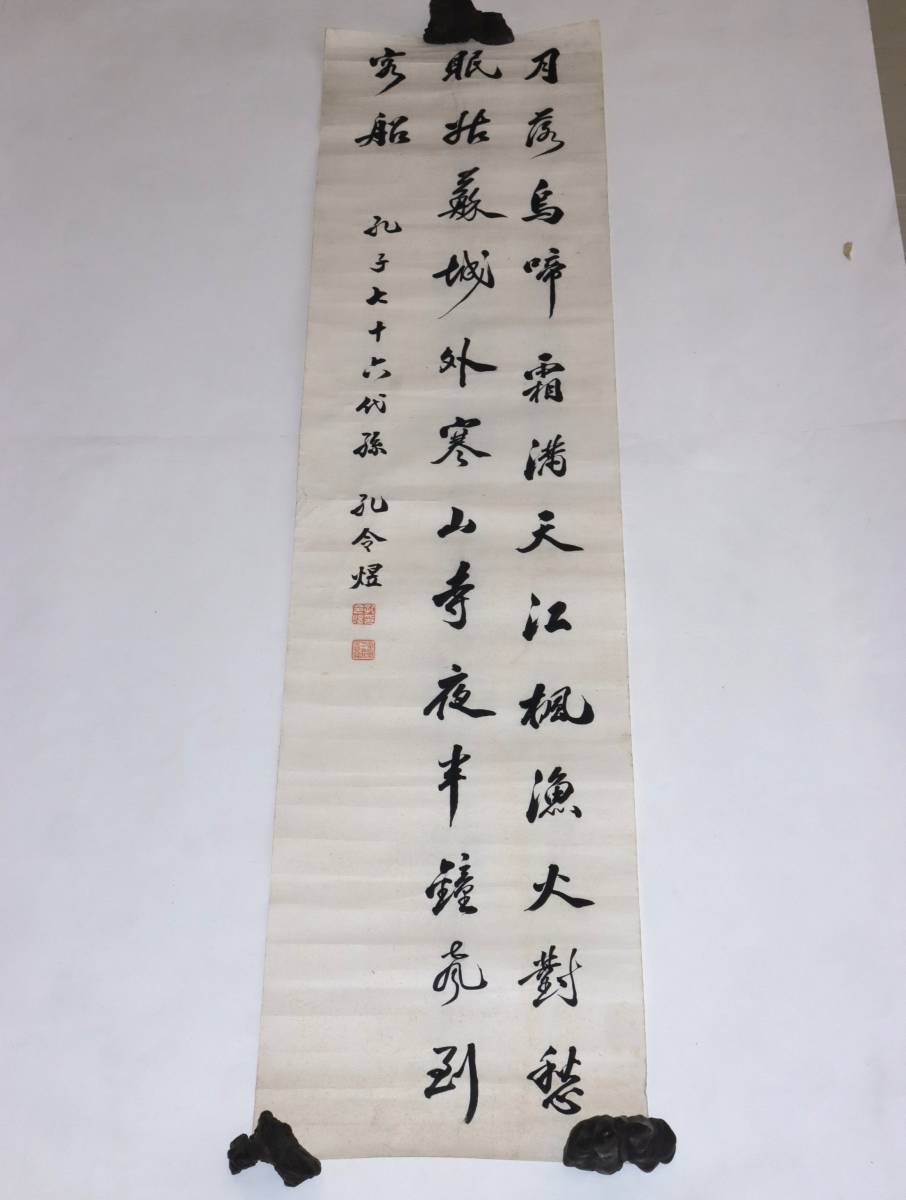 月落烏啼霜満天江楓漁火對愁
眠姑蘇城外寒山寺夜半鐘声到
客船
孔子七十六代孫 孔令煜